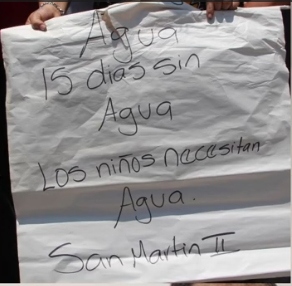 Agua
15 dias sin
Agua
Los niños necesitan
Agua.
San Martin II